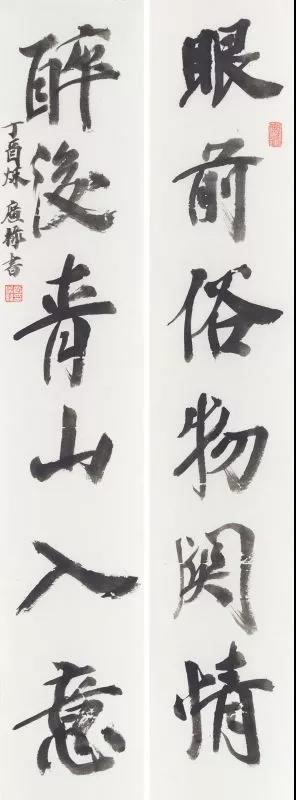 眼前俗物関情
醉後青山入意
丁酉秌 廣梅書